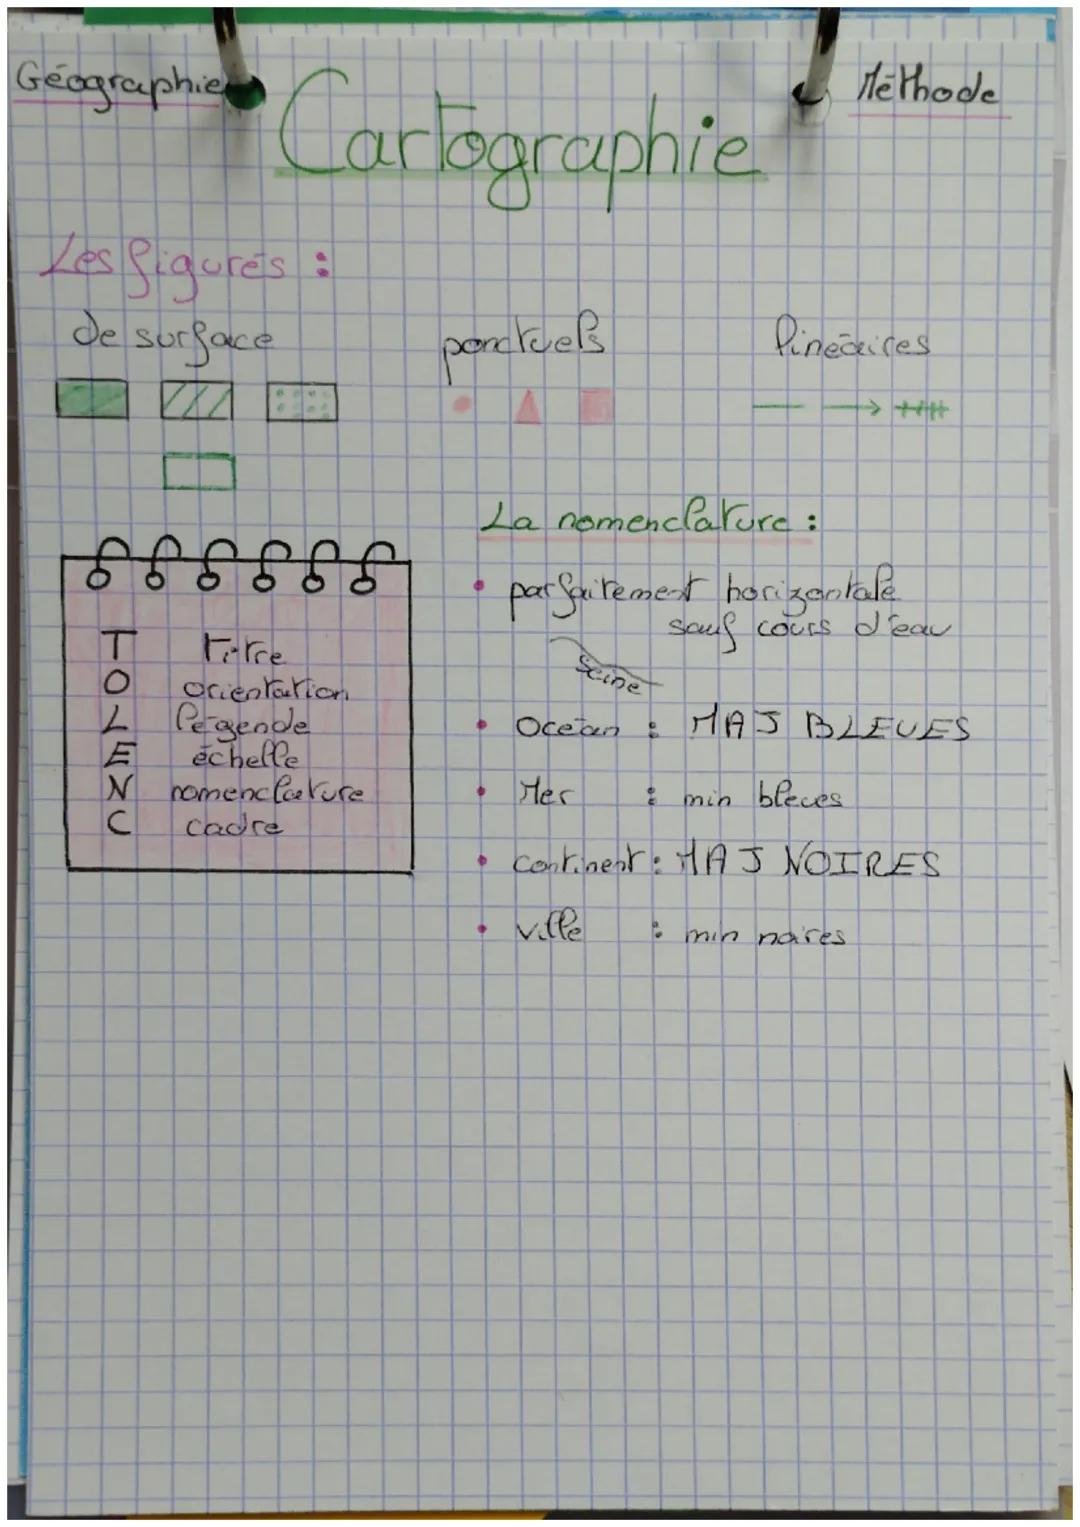 Géographie
Méthode
Cartographie
Les figurés :
de surface
ponctuels
linéaires
T titre
O orientation
L légende
E échelle
N nomenclature
C cadre
La nomenclature :
• parfaitement horizontale
sauf cours d'eau
Seine
• Océan : MAJ BLEUES
• Mer : min bleues
• continent : MAJ NOIRES
• ville : min noires